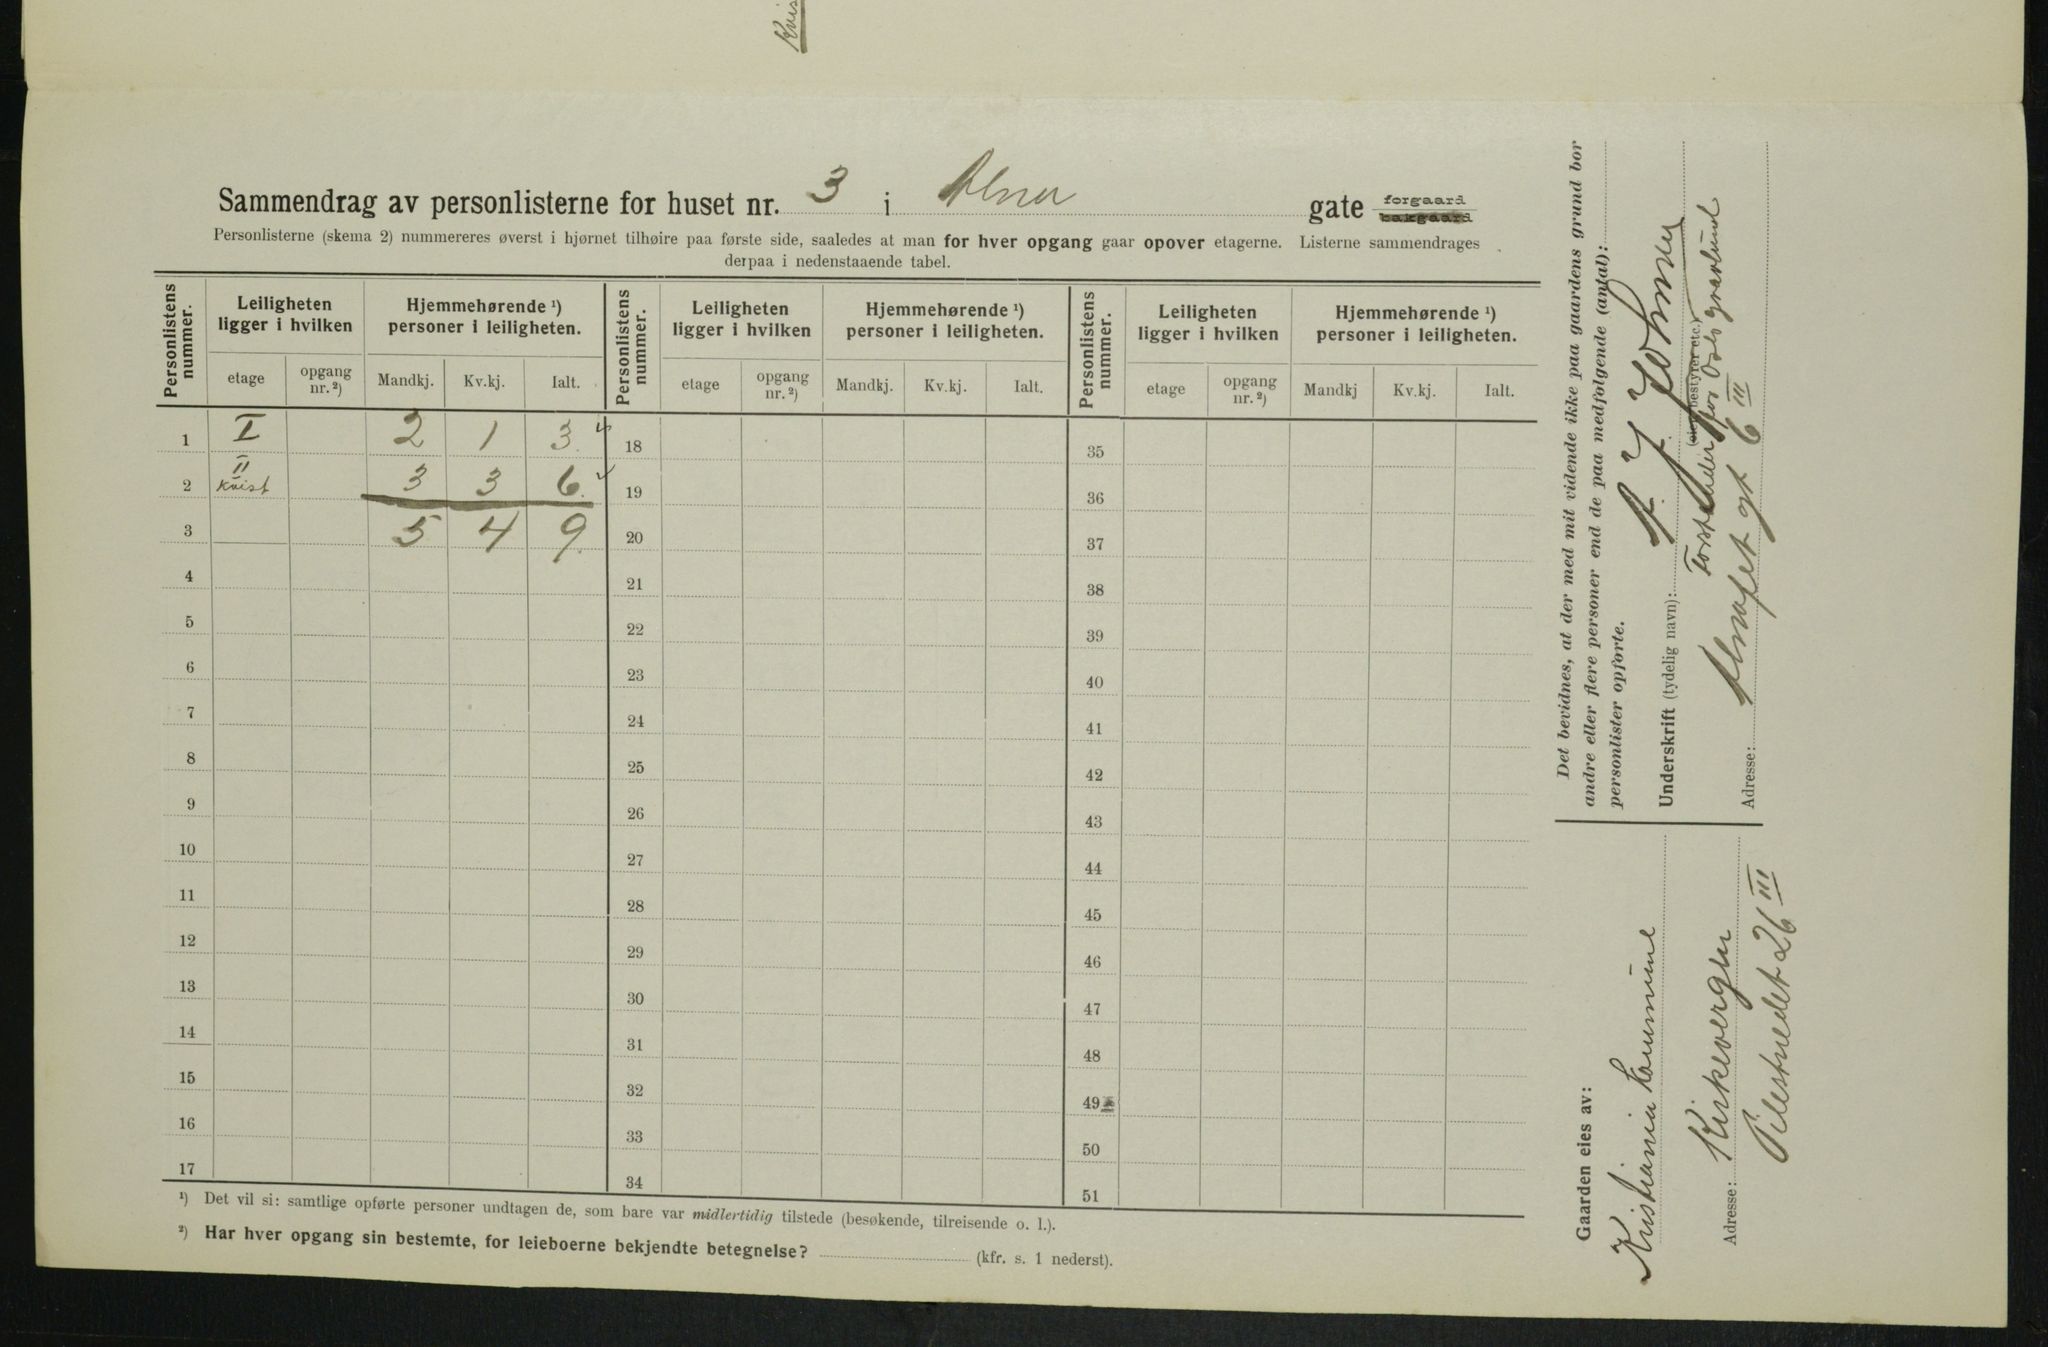 Kvis
Sammendrag av personlisterne for huset nr. 3 i Alna gate forgaard bakgaard
Personlisterne (skema 2) nummereres øverst i hjørnet tilhøire paa første side, saaledes at man for hver opgang gaar opover etagerne. Listerne sammendrages
derpaa i nedenstaaende tabel.
Personlistens nummer. Leiligheten ligger i hvilken Hjemmehørende ¹) personer i leiligheten. Personlistens nummer. Leiligheten ligger i hvilken Hjemmehørende ¹) personer i leiligheten. Personlistens nummer. Leiligheten ligger i hvilken Hjemmehørende ¹) personer i leiligheten.
etage opgang nr. ²) Mandkj. Kv.kj. Ialt. etage opgang nr. ²) Mandkj. Kv.kj. Ialt. etage opgang nr. ²) Mandkj Kv.kj. Ialt.
1 I 2 1 3. 18 35
2 II kvist 3 3 6. 19 36
3 5 4 9. 20 37
4 21 38
5 22 39
6 23 40
7 24 41
8 25 42
9 26 43
10 27 44
11 28 45
12 29 46
13 30 47
14 31 48
15 32 49
16 33 50
17 34 51
¹) Det vil si: samtlige opførte personer undtagen de, som bare var midlertidig tilstede (besøkende, tilreisende o. l.).
²) Har hver opgang sin bestemte, for leieboerne bekjendte betegnelse? (kfr. s. 1 nederst).
Det bevidnes, at der med mit vidende ikke paa gaardens grund bor
andre eller flere personer end de paa medfolgende (antal):
personlister opforte.
Underskrift (tydelig navn):
(eier, bestyrer etc.)
Forstander for Oslo gravlund
Adresse: 6 III
Gaarden eies av:
Kristiania kommune
Kirkevergen
Adresse: Pilestrædet 26 III